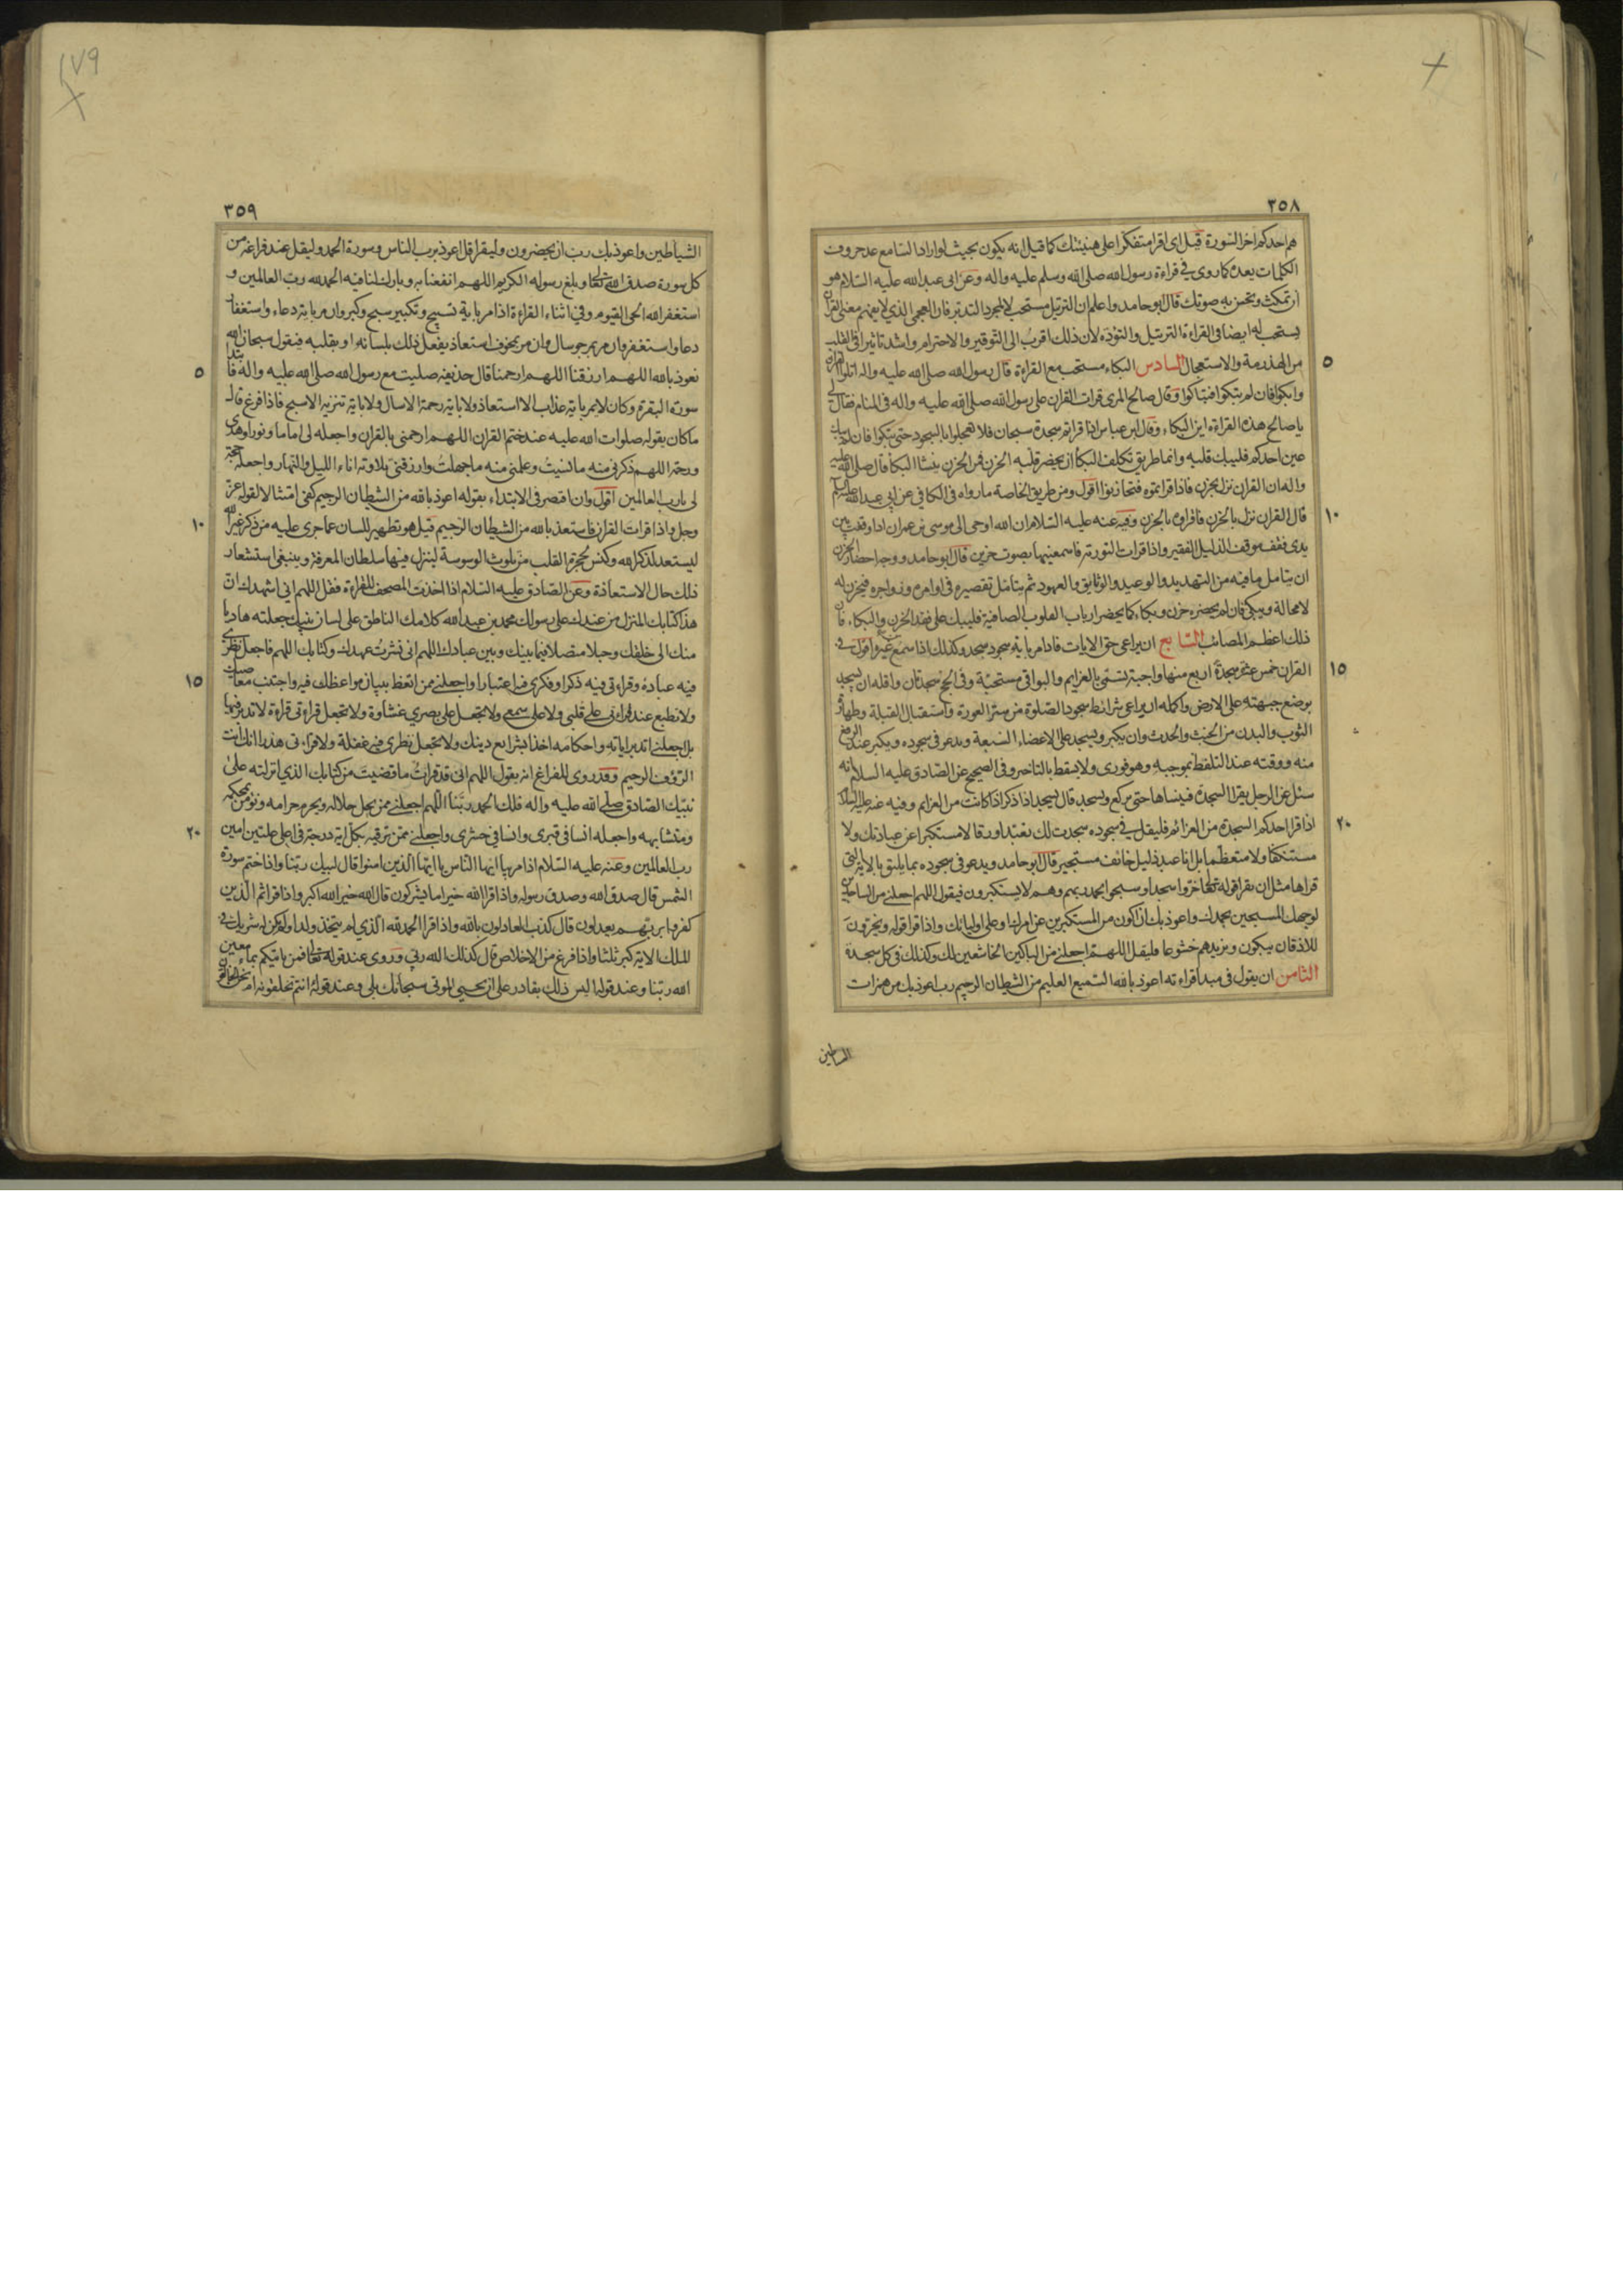 ٣٥٨
هم احدكم اخر السورة قيل اى اقرا متفكرا على هنيئتك كما قيل انه يكون بحيث لو اراد السامع عد حروف
الكلمات يعده كما روى في قراءة رسول الله صلى الله وسلم عليه واله وعن ابى عبد الله عليه السلام هو
ان تمكث وتحسن به صوتك قال ابو حامد واعلم ان الترتيل مستحب لا لمجرد التدبر فان العجمى الذي لا يفهم معنى القران
يستحب له ايضا في القراءة الترتيل والتؤده لان ذلك اقرب الى التوقير والاحترام واشد تاثيرا في القلب
٥
من الهذرمة والاستعجال السادس البكاء مستحب مع القراءة قال رسول الله صلى الله عليه واله اتلوا القران
وابكوا فان لم تبكوا فتباكوا وقال صالح المرى قرات القران على رسول الله صلى الله عليه واله فى المنام فقال لى
يا صالح هذه القراءة اين البكاء وقال ابن عباس اذا قراتم سجدة سبحان فلا تعجلوا بالسجود حتى تبكوا فان لم تبك
عين احدكم فليبك قلبه وانما طريق تكلف البكا ان يحضر قلبه الحزن فمن الحزن ينشا البكا قال صلى الله عليه
واله ان القران نزل بحزن فاذا قراتموه فتحازنوا اقول ومن طريق الخاصة ما رواه فى الكافي عن ابى عبد الله عليه السلم
١٠
قال القران نزل بالحزن فاقراوه بالحزن وفيه عنه عليه السلام ان الله اوحى الى موسى بن عمران اذا وقفت بين
يدى فقف موقف الذليل الفقير واذا قرات التورته فاسمعنيها بصوت حزين قال ابو حامد ووجه احضار الحزن
ان يتامل ما فيه من التهديد والوعيد والوثايق والعهود ثم يتامل تقصيره فى اوامره وزواجره فيحزن له
لا محالة ويبكى فان لم يحضره حزن وبكاء كما يحضر ارباب القلوب الصافية فليبك على فقد الحزن والبكاء فان
ذلك اعظم المصائب السابع ان يراعى حق الايات فاذا مر باية سجود سجد وكذلك اذا سمع من غيره اقول فى
١٥
القران خمس عشر سجدة اربع منها واجبة تسمى بالعزايم والبواقى مستحبة وفى الحج سجدتان واقله ان يسجد
بوضع جبهته على الارض واكمله ان يراعى شرائط سجود الصلوة من ستر العورة واستقبال القبلة وطهارة
الثوب والبدن من الخبث والحدث وان يكبر ويسجد على الاعضاء السبعة ويدعو فى سجوده ويكبر عند الرفع
منه ووقته عند التلفظ بموجبه وهو فورى ولا يسقط بالتاخير وفى الصحيح عن الصادق عليه السلام انه
سئل عن الرجل يقرا السجدة فينساها حتى يركع ويسجد قال يسجد اذا ذكر اذا كانت من العزايم وفيه عنه عليه السلام
٢٠
اذا قرا احدكم السجدة من العزائم فليقل فى سجوده سجدت لك تعبدا ورقا لا مستكبرا عن عبادتك ولا
مستنكفا ولا متعظما بل انا عبد ذليل خائف مستجير قال ابو حامد ويدعو فى سجوده بما يليق بالاية التى
قراها مثل ان يقرا قوله تعالى خروا سجدا وسبحوا بحمد ربهم وهم لا يستكبرون فيقول اللهم اجعلنى من الساجدين
لوجهك المسبحين بحمدك واعوذ بك ان اكون من المستكبرين عن امرك او على اوليائك واذا قرا قوله ويخرون
للاذقان يبكون ويزيدهم خشوعا فليقل اللهم اجعلنى من الباكين الخاشعين لك وكذلك فى كل سجدة
الثامن ان يقول فى مبدا قراءته اعوذ بالله السميع العليم من الشيطان الرجيم رب اعوذ بك من همزات
الشياطين
١٧٩
٣٥٩
الشياطين واعوذ بك رب ان يحضرون وليقرا قل اعوذ برب الناس وسورة الحمد وليقل عند فراغه من
كل سورة صدق الله تعالى وبلغ رسوله الكريم اللهم انفعنا به وبارك لنا فيه الحمد لله رب العالمين و
استغفر الله الحى القيوم وفى اثناء القراءة اذا مر باية تسبيح وتكبير سبح وكبر وان مر باية دعاء واستغفار
دعا واستغفر وان مر بمرجو سال وان مر بمخوف استعاذ يفعل ذلك بلسانه او بقلبه فيقول سبحان الله
٥
نعوذ بالله اللهم ارزقنا اللهم ارحمنا قال حذيفه صليت مع رسول الله صلى الله عليه واله فابتدا
سورة البقرة وكان لا يمر باية عذاب الا استعاذ ولا باية رحمة الا سال ولا باية تنزيه الا سبح فاذا فرغ قال
ما كان يقوله صلوات الله عليه عند ختم القران اللهم ارحمنى بالقران واجعله لى اماما ونورا وهدى
ورحمة اللهم ذكرنى منه ما نسيت وعلمنى منه ما جهلت وارزقنى تلاوته اناء الليل والنهار واجعله حجة
لى يا رب العالمين اقول وان اقتصر فى الابتداء بقوله اعوذ بالله من الشيطان الرجيم كفى امتثالا لقوله عز
١٠
وجل واذا قرات القران فاستعذ بالله من الشيطان الرجيم قيل هو تطهير للسان عما جرى عليه من ذكر غير الله
ليستعد لذكر الله وكنس لحجرة القلب من تلوث الوسوسة لينزل فيها سلطان المعرفة وينبغى استشعار
ذلك حال الاستعاذة وعن الصادق عليه السلام اذا اخذت المصحف للقراءة فقل اللهم انى اشهدك ان
هذا كتابك المنزل من عندك على رسولك محمد بن عبد الله كلامك الناطق على لسان نبيك جعلته هاديا
منك الى خلقك وحبلا متصلا فيما بينك وبين عبادك اللهم انى نشرت عهدك وكتابك اللهم فاجعل نظرى
١٥
فيه عبادة وقراءتى فيه ذكرا وفكرى فيه اعتبارا واجعلنى ممن اتعظ ببيان مواعظك فيه واجتنب معاصيك
ولا تطبع عند قراءتى على قلبى ولا على سمعى ولا تجعل على بصرى غشاوة ولا تجعل قراءتى قراءة لا تدبر فيها
بل اجعلنى اتدبر اياته واحكامه اخذا بشرايع دينك ولا تجعل نظرى فيه غفلة ولا قراءتى هذرا انك انت
الرؤف الرحيم وقد روى للفراغ انه يقول اللهم انى قد قرات ما قضيت من كتابك الذي انزلته على
نبيك الصادق صلى الله عليه واله فلك الحمد ربنا اللهم اجعلنى ممن يحل حلاله ويحرم حرامه ويؤمن بمحكمه
٢٠
ومتشابهه واجعله انسا فى قبرى وانسا فى حشرى واجعلنى ممن ترقيه بكل اية درجة فى اعلى عليين امين
رب العالمين وعنه عليه السلام اذا مر بيا ايها الناس يا ايها الذين امنوا قال لبيك ربنا واذا ختم سورة
الشمس قال صدق الله وصدق رسوله واذا قرا الله خير اما يشركون قال الله خير الله اكبر واذا قرا ثم الذين
كفروا بربهم يعدلون قال كذب العادلون بالله واذا قرا الحمد لله الذي لم يتخذ ولدا ولم يكن له شريك فى
الملك الاية كبر ثلثا واذا فرغ من الاخلاص قال كذلك الله ربى وروى عند قوله تعالى فمن ياتيكم بماء معين
الله ربنا وعند قوله اليس ذلك بقادر على ان يحيى الموتى سبحانك بلى وعند قوله انتم تخلقونه ام نحن الخالقون